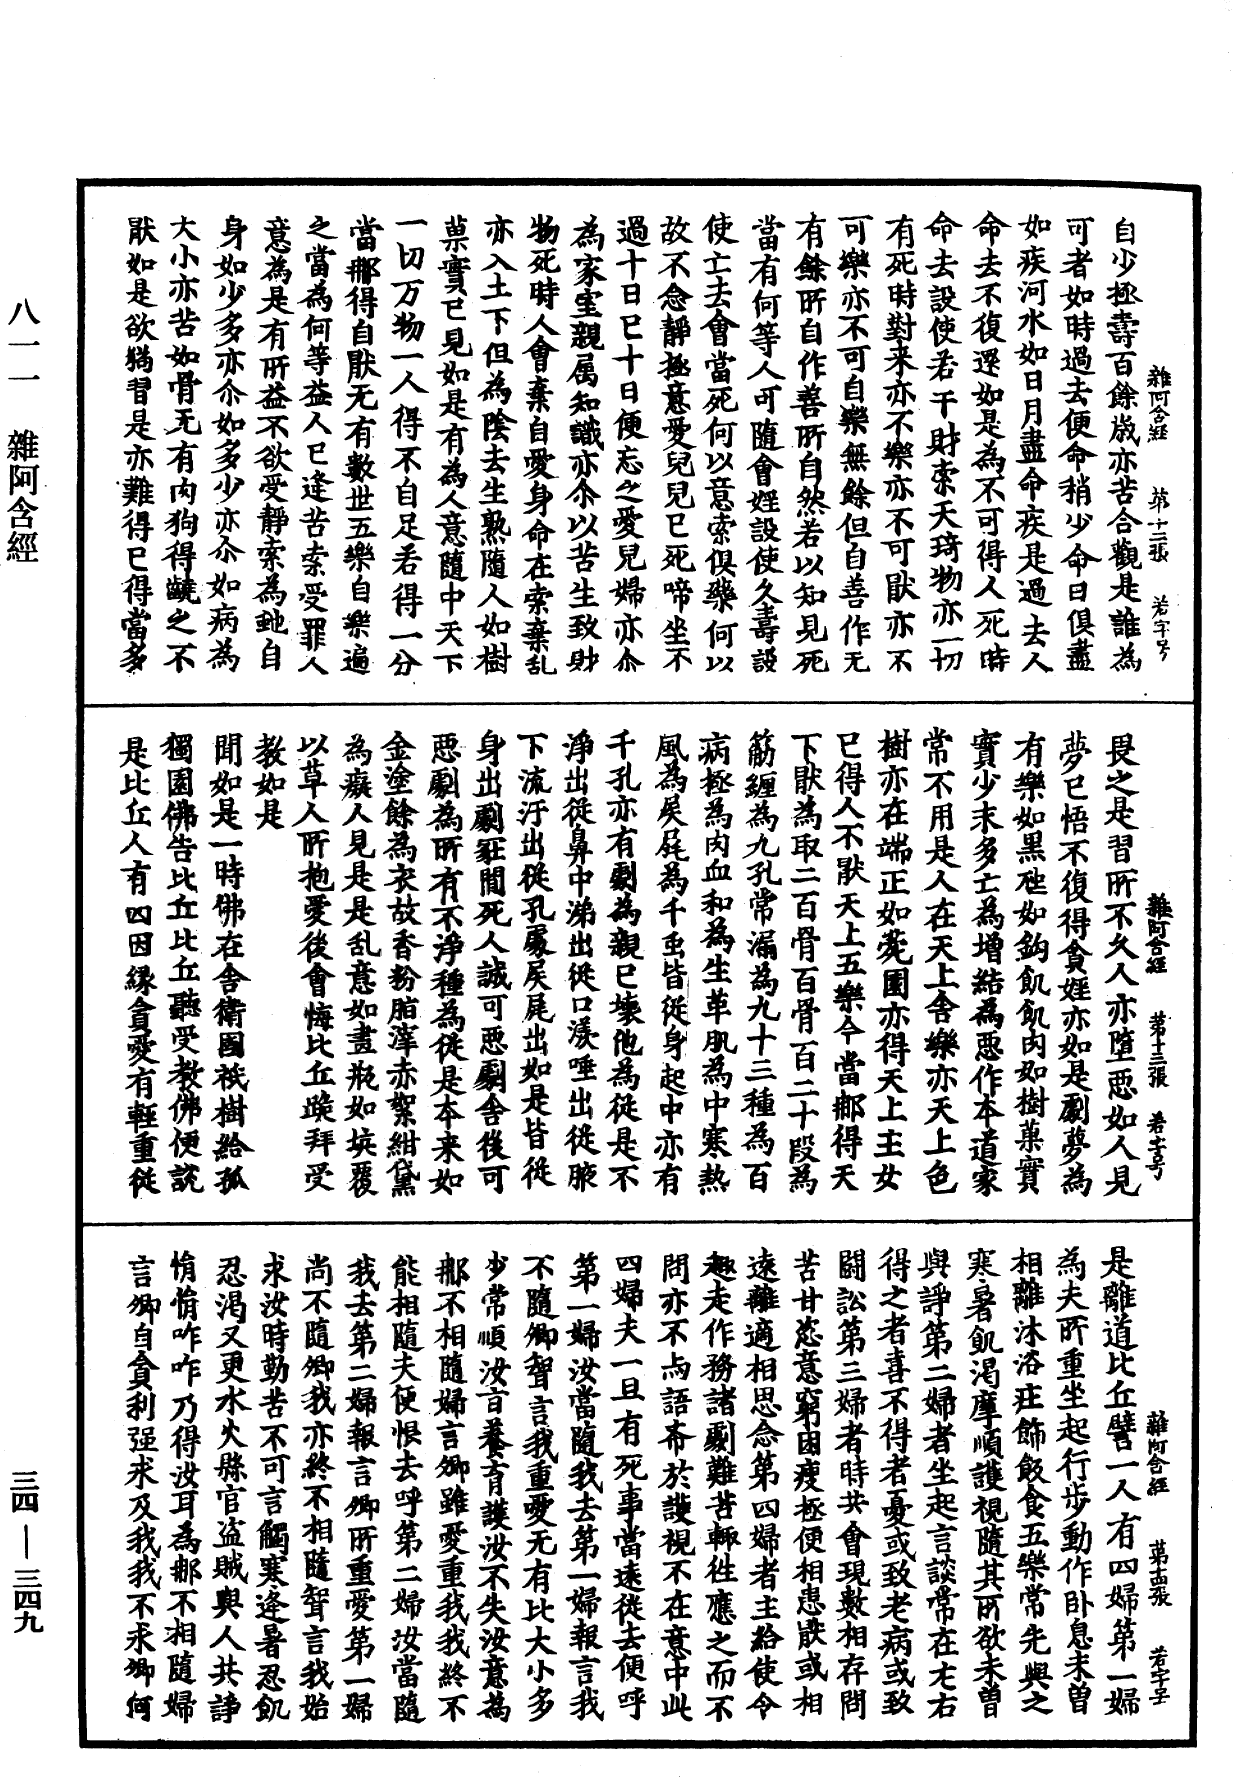 自少極壽百餘歲亦苦合觀是誰為
可者如時過去便命稍少命日俱盡
如疾河水如日月盡命疾是過去人
命去不復還如是為不可得人死時
命去設使若干財索天琦物亦一切
有死時對来亦不樂亦不可猒亦不
可樂亦不可自樂無餘但自善作无
有餘所自作善所自然若以知見死
當有何等人可隨會婬設使久壽設
使亡去會當死何以意索俱藥何以
故不念靜極意愛兒兒已死啼坐不
過十日已十日便忘之愛兒婦亦尒
為家室親属知識亦尒以苦生致財
物死時人會棄自愛身命在索棄乱
亦入土下但為陰去生熟隨人如樹
菓實已見如是有為人意隨中天下
一切万物一人得不自足若得一分
當那得自猒无有數世五樂自樂遍
之當為何等益人已逢苦索受罪人
意為是有所益不欲受靜索為虵自
身如少多亦尒如多少亦尒如病為
大小亦苦如骨无有肉狗得齩之不
猒如是欲猶習是亦難得已得當多
雜阿含經　苐十二張　若字号
畏之是習所不久人亦墮惡如人見
夢已悟不復得貪婬亦如是劇夢為
有樂如黑虺如鈎飢飢肉如樹菓實
實少末多亡為增結為惡作本道家
常不用是人在天上舍樂亦天上色
樹亦在端正如菀園亦得天上主女
已得人不猒天上五樂今當那得天
下猒為取二百骨百骨百二十段為
筋纏為九孔常漏為九十三種為百
病極為肉血和為生革肌為中寒熱
風為屎屎為千虫皆從身起中亦有
千孔亦有劇為親已壞他為從是不
淨出從鼻中涕出從口涎唾出從腋
下流汙出從孔處屎尿出如是皆從
身出劇冢間死人誠可惡劇舍後可
惡劇為所有不淨種為從是本来如
金塗餘為衣故香粉脂滓赤絮紺黛
為癡人見是是乱意如畫瓶如坑覆
以草人所抱愛後會悔比丘䠒拜受
教如是
聞如是一時佛在舍衛國祇樹給孤
獨園佛告比丘比丘聽受教佛便說
是比丘人有四因縁貪愛有輕重從
雜阿含經　第十三張　若字号
是離道比丘譬一人有四婦第一婦
為夫所重坐起行步動作卧息未曽
相離沐浴庄飾飯食五樂常先與之
寒暑飢渴摩順護視隨其所欲未曽
與諍第二婦者坐起言談常在左右
得之者喜不得者憂或致老病或致
鬪訟第三婦者時共會現數相存問
苦甘恣意窮困瘦極便相患猒或相
遠離適相思念第四婦者主給使令
趣走作務諸劇難苦輒往應之而不
問亦不与語希於護視不在意中此
四婦夫一旦有死事當遠從去便呼
第一婦汝當隨我去第一婦報言我
不隨卿聟言我重愛无有比大小多
少常順汝言養育護汝不失汝意為
那不相隨婦言卿雖愛重我我終不
能相隨夫便恨去呼第二婦汝當隨
我去第二婦報言卿所重愛第一婦
尚不隨卿我亦終不相隨聟言我始
求汝時勤苦不可言觸寒逢暑忍飢
忍渴又更水火縣官盗賊與人共諍
悁悁咋咋乃得汝耳為那不相隨婦
言卿自貪利强求及我我不求卿何
雜阿含經　第十四張　若字号
八一一　雜阿含經
三四—三四九